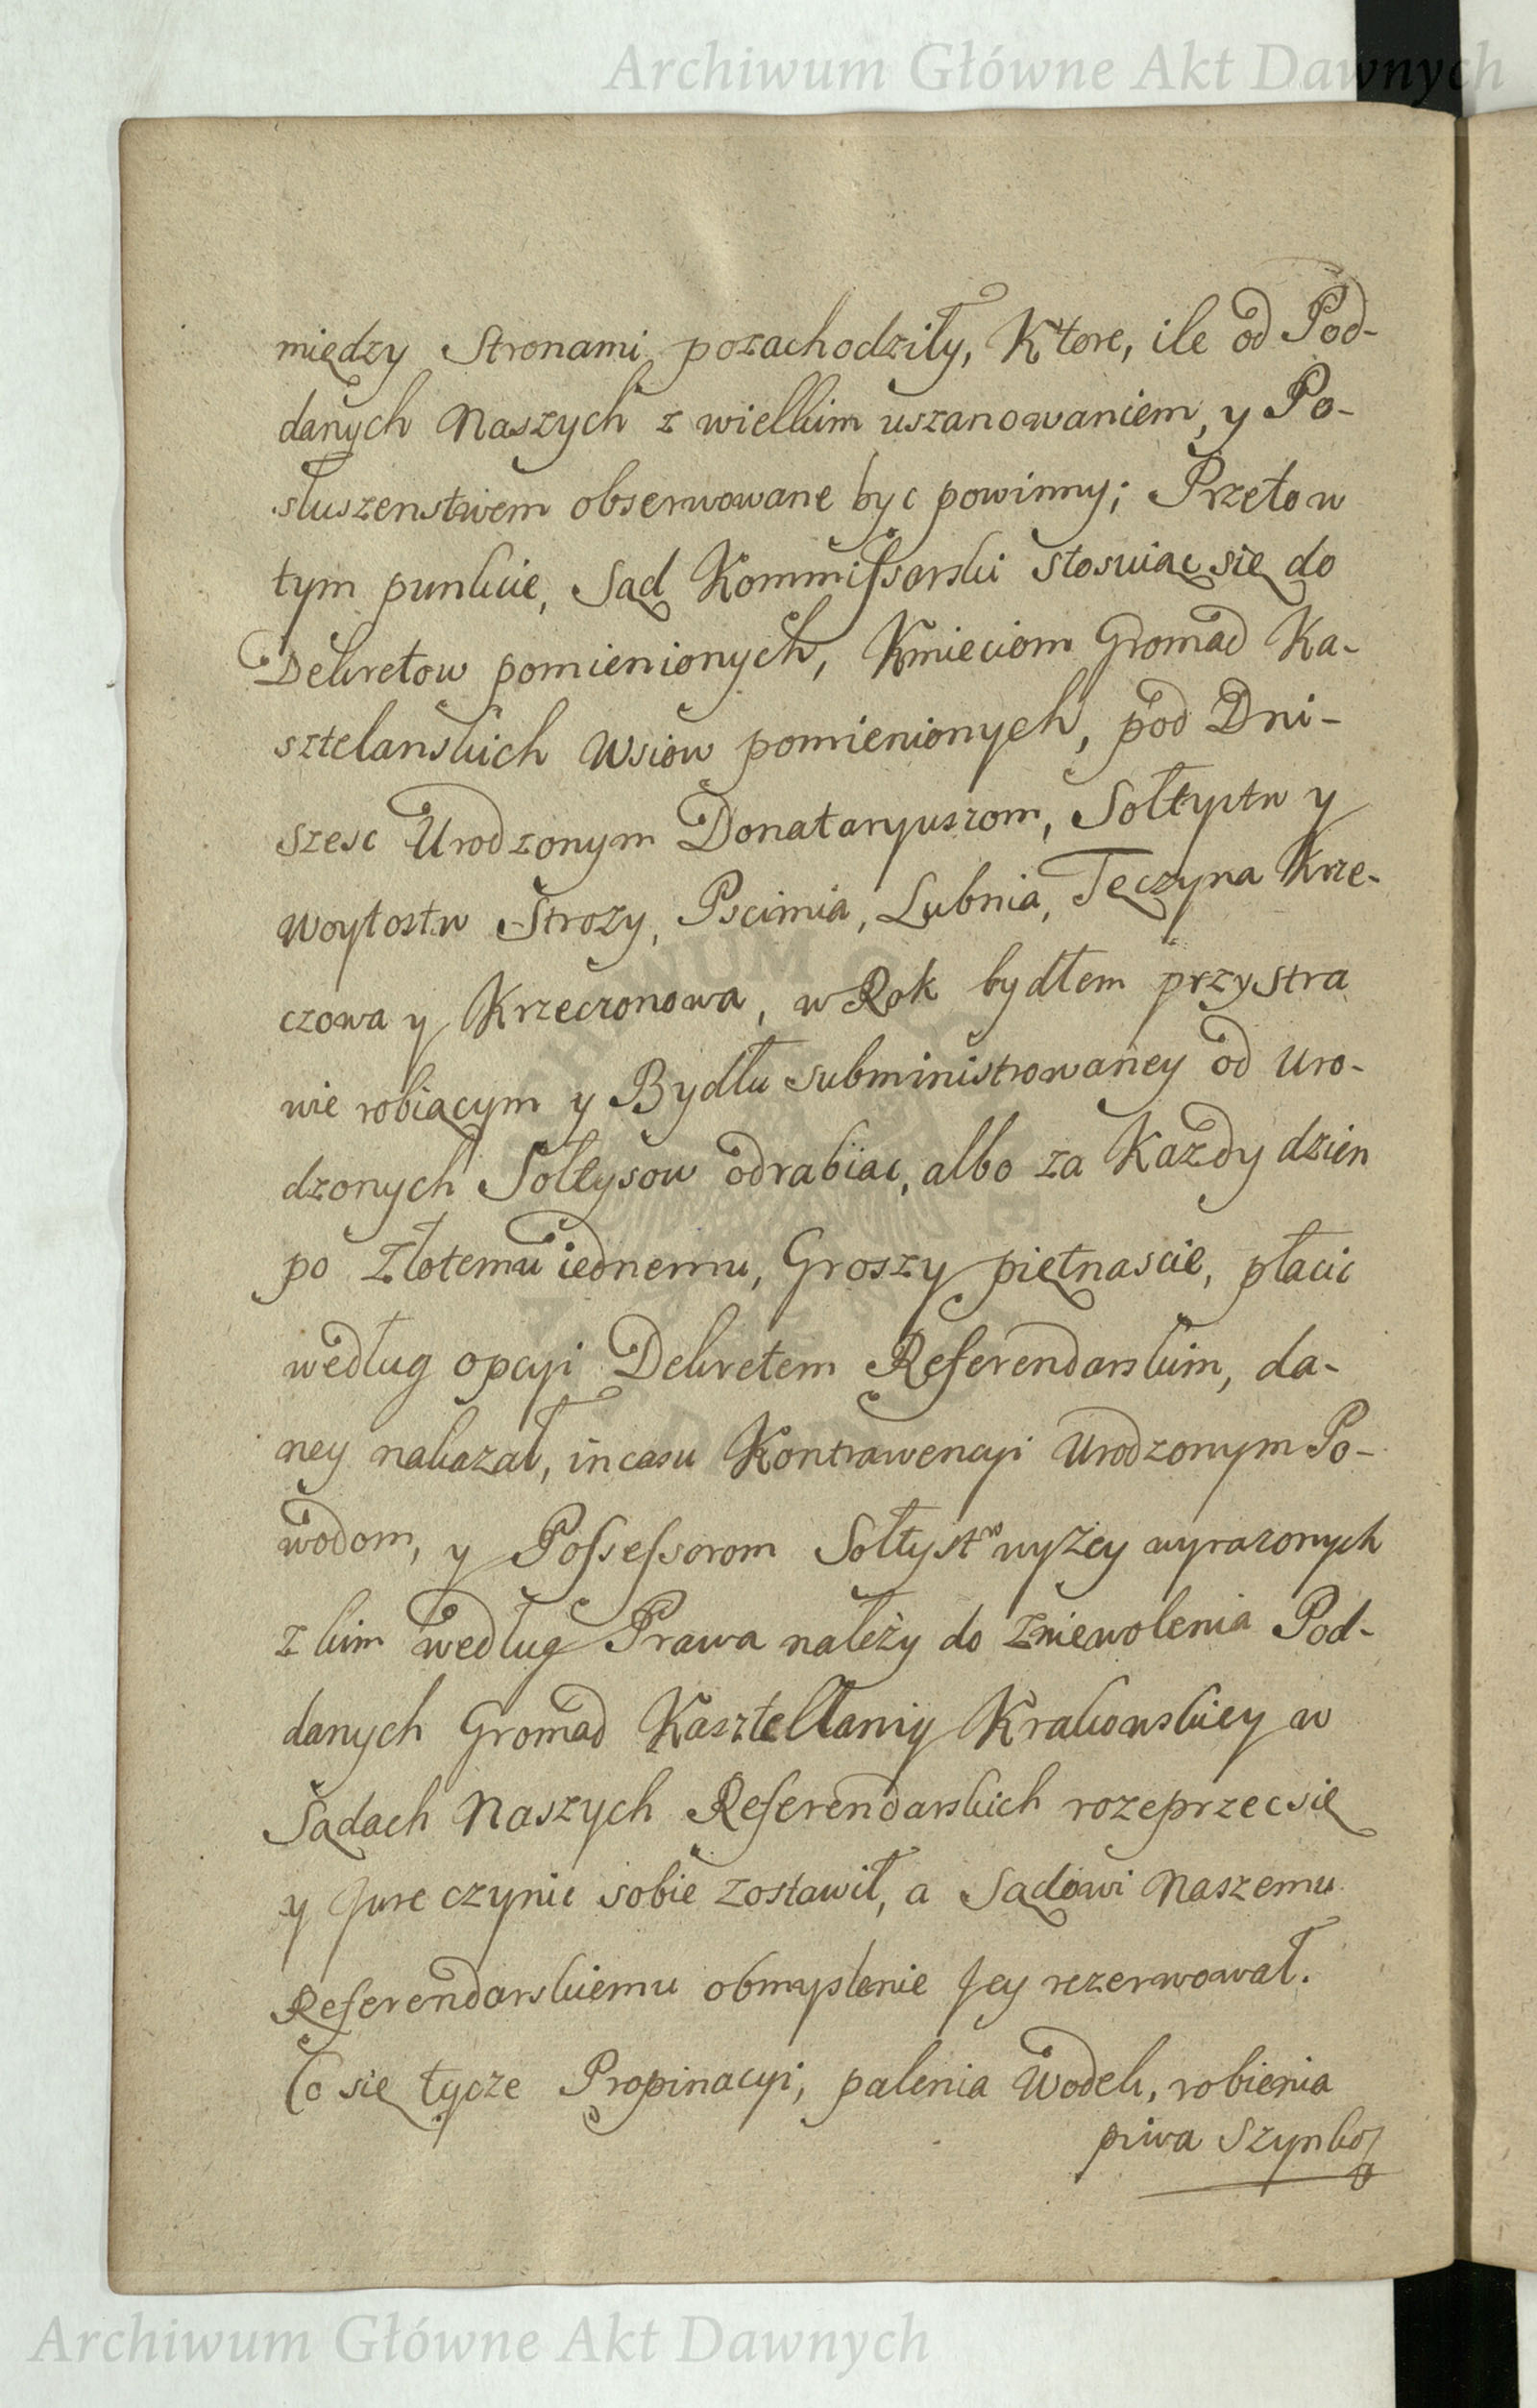 Archiwum Główne Akt Dawnych
między Stronami pozachodziły, Ktore, ile od Pod-
danych Naszych z wielkim uszanowaniem, y Po-
słuszenstwem obserwowane byc powinny; Przeto w
tym punkcie, Sąd Kommissarski stosuiąc się do
Dekretow pomienionych, Kmieciom Gromad Ka-
sztelanskich Wsiow pomienionych, pod Dni-
szesc Urodzonym Donataryuszom, Sołtystw y
Woytostw Strozy, Pscimia, Lubnia, Tęczyna Krze-
czowa y Krzeczonowa, w Rok bydłem przy stra
wie robiącym y Bydłu subministrowaney od Uro-
dzonych Sołtysow odrabiac, albo za Kazdy dzien
po Złotemu iednemu, Groszy piętnascie, płacic
według opcyi Dekretem Referendarskim, da-
ney nakazał, in casu Kontrawencyi Urodzonym Po-
wodom, y Possessorom Sołtystw wyżey wyrazonych
z kim według Prawa należy do zniewolenia Pod-
danych Gromad Kasztellaniy Krakowskiey w
Sądach Naszych Referendarskich rozeprzec się
y Jure czynic sobie zostawił, a Sądowi Naszemu
Referendarskiemu obmyslenie Jey rezerwował.
Co się tycze Propinacyi, palenia Wodek, robienia
piwa Szynko
Archiwum Główne Akt Dawnych